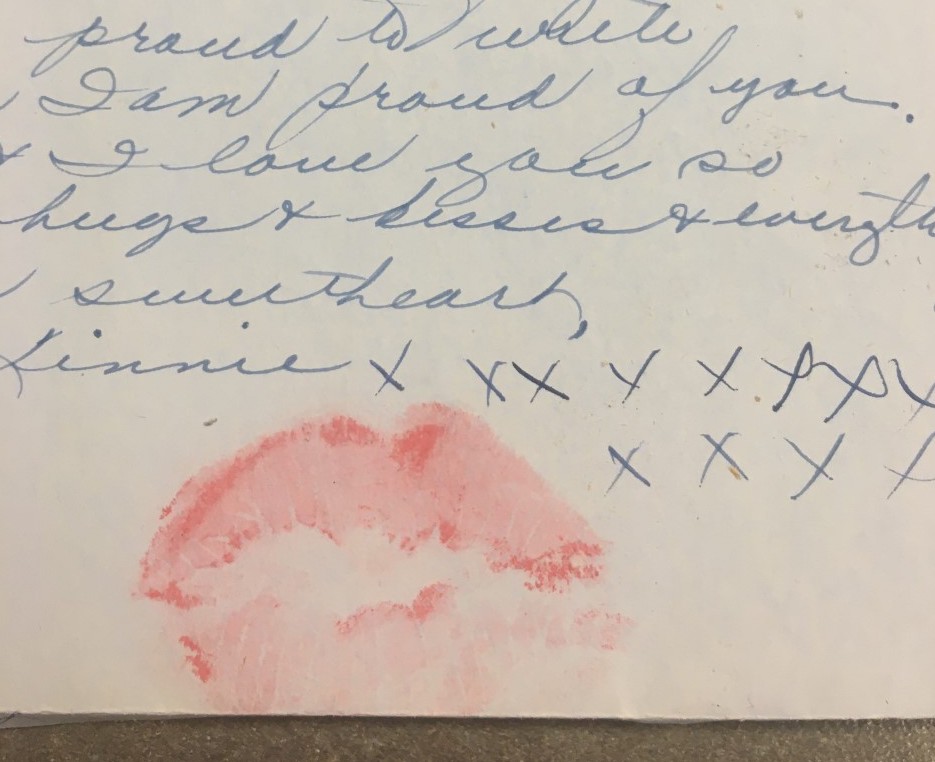 proud to write
I am proud of you.
& I love you so
hugs & kisses & everyth
sweetheart,
Kinnie x x x x x x x x
x x x x